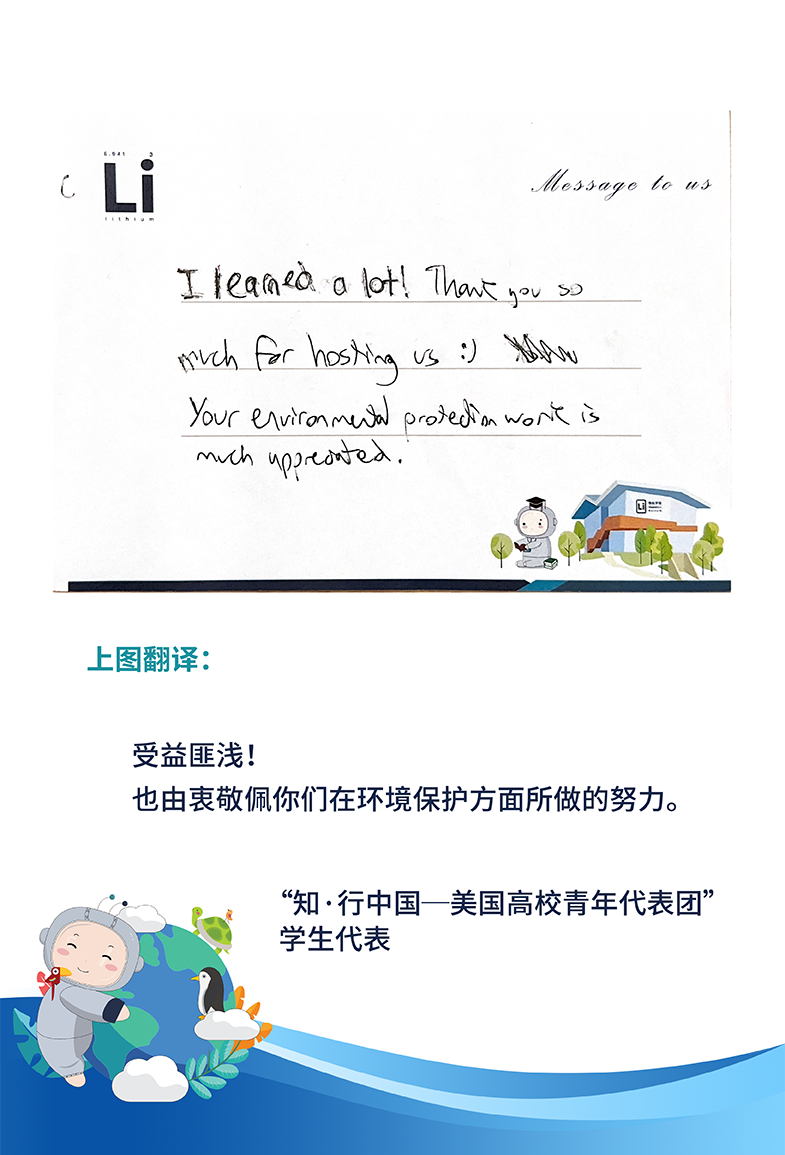 6.941 3
Li
lithium
Message to us
I learned a lot! Thank you so
much for hosting us :)
Your environmental protection work is
much appreciated.
Li
上图翻译：
受益匪浅！
也由衷敬佩你们在环境保护方面所做的努力。
“知·行中国—美国高校青年代表团”
学生代表